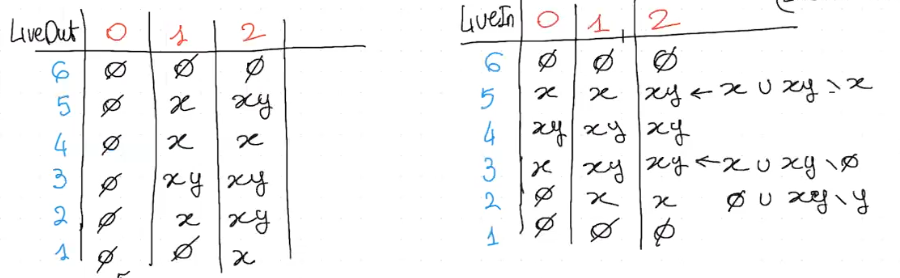 LiveOut 0 1 2
6 ∅ ∅ ∅
5 ∅ x xy
4 ∅ x x
3 ∅ xy xy
2 ∅ x xy
1 ∅ ∅ x
LiveIn 0 1 2
6 ∅ ∅ ∅
5 x x xy ← x ∪ xy \ x
4 xy xy xy
3 x xy xy ← x ∪ xy \ ∅
2 ∅ x x ∅ ∪ xy \ y
1 ∅ ∅ ∅